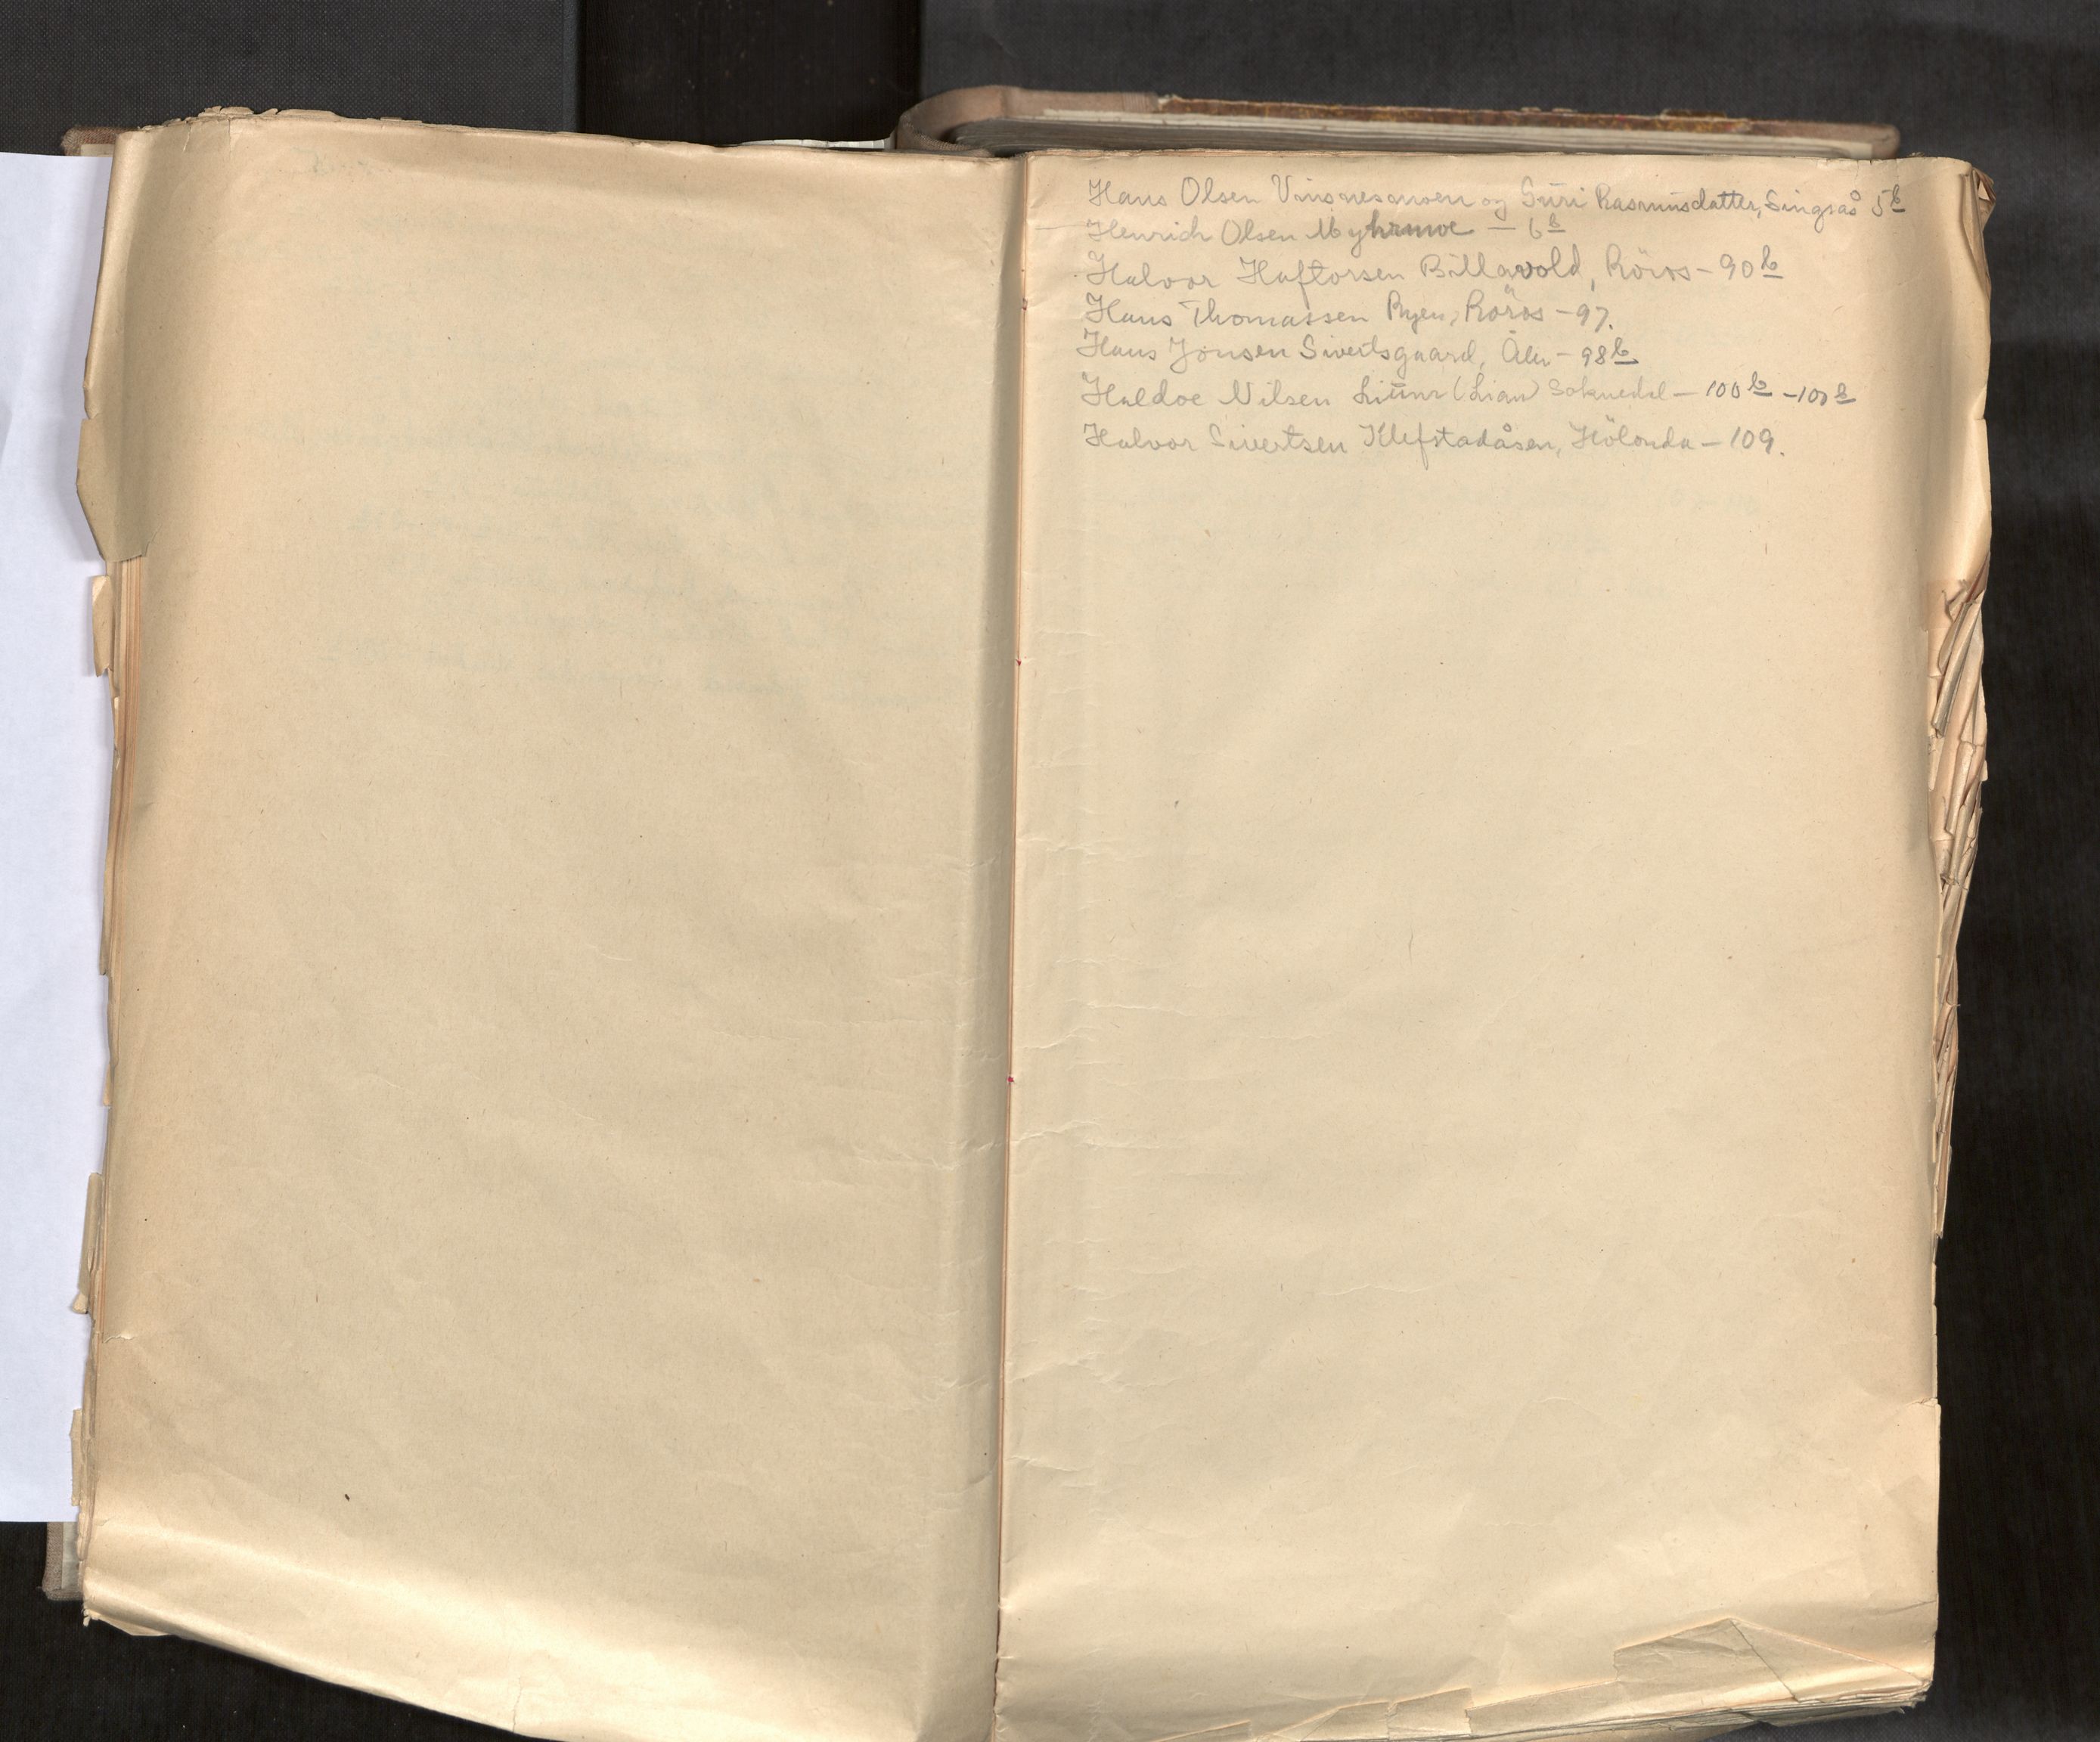 Hans Olsen Vinsnesmoen og Siiri Rasmusdatter, Singsås 5b
Henrich Olsen Myhrmoe — 6b
Halvor Haftorsen Billavold, Röros - 90b
Hans Thomassen Ryen, Röros - 97.
Hans Jonsen Sivertsgaard, Ålen - 98b
Haldoe Nilsen (Lian) Soknedal — 100b - 101b
Halvor Sivertsen Klefstadåsen, Hölonda — 109.